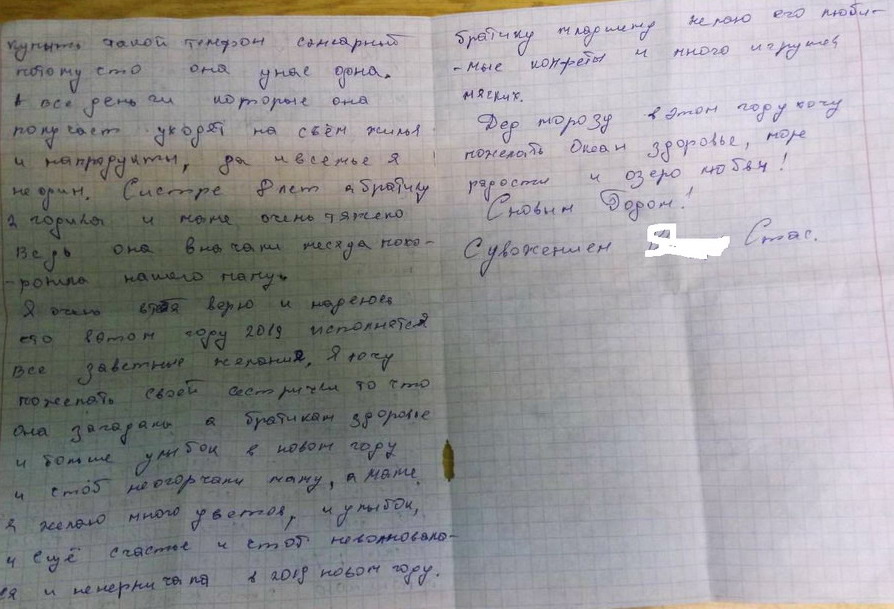 купить такой телефон сенсарный
потому сто она унас одна.
А все деньги которые она
получает уходят на сьём жилья
и напродукты, да и в семье я
не один. Систре 8 лет а братику
2 годика и маме очень тяжело
Ведь она вначали месяца похо-
-ронила нашего папу.
Я очень верю и надеюсь
сто вэтом году 2019 исполнется
все заветные желания, Я хочу
пожелать своей сестрички то что
она загадала а братикам здоровье
и больше улыбок в новом году
и стоб неогорчали маму, а маме
я желаю много цветов, и улыбок,
и ещё счастье и стоб неволновала-
ся и ненервничала в 2019 новом году.
братику младшему желаю его люби-
-мые конфеты и много игрушек
мяских.
Дед морозу вэтом году хочу
пожелать Океан здоровье, море
радости и озеро любви!
Сновым Годом!
Суважением Стас.